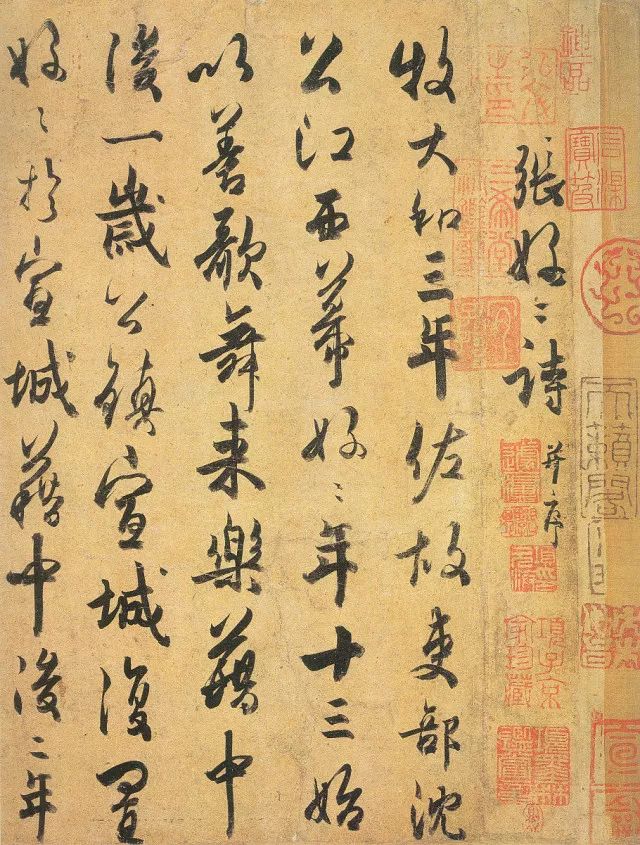 天籟閣
項子京
家珍藏
張好〻詩 并序
牧大和三年佐故吏部沈
公江西幕好〻年十三始
以善歌舞来樂藉中
後一歲公鎮宣城復置
好〻於宣城藉中後二年